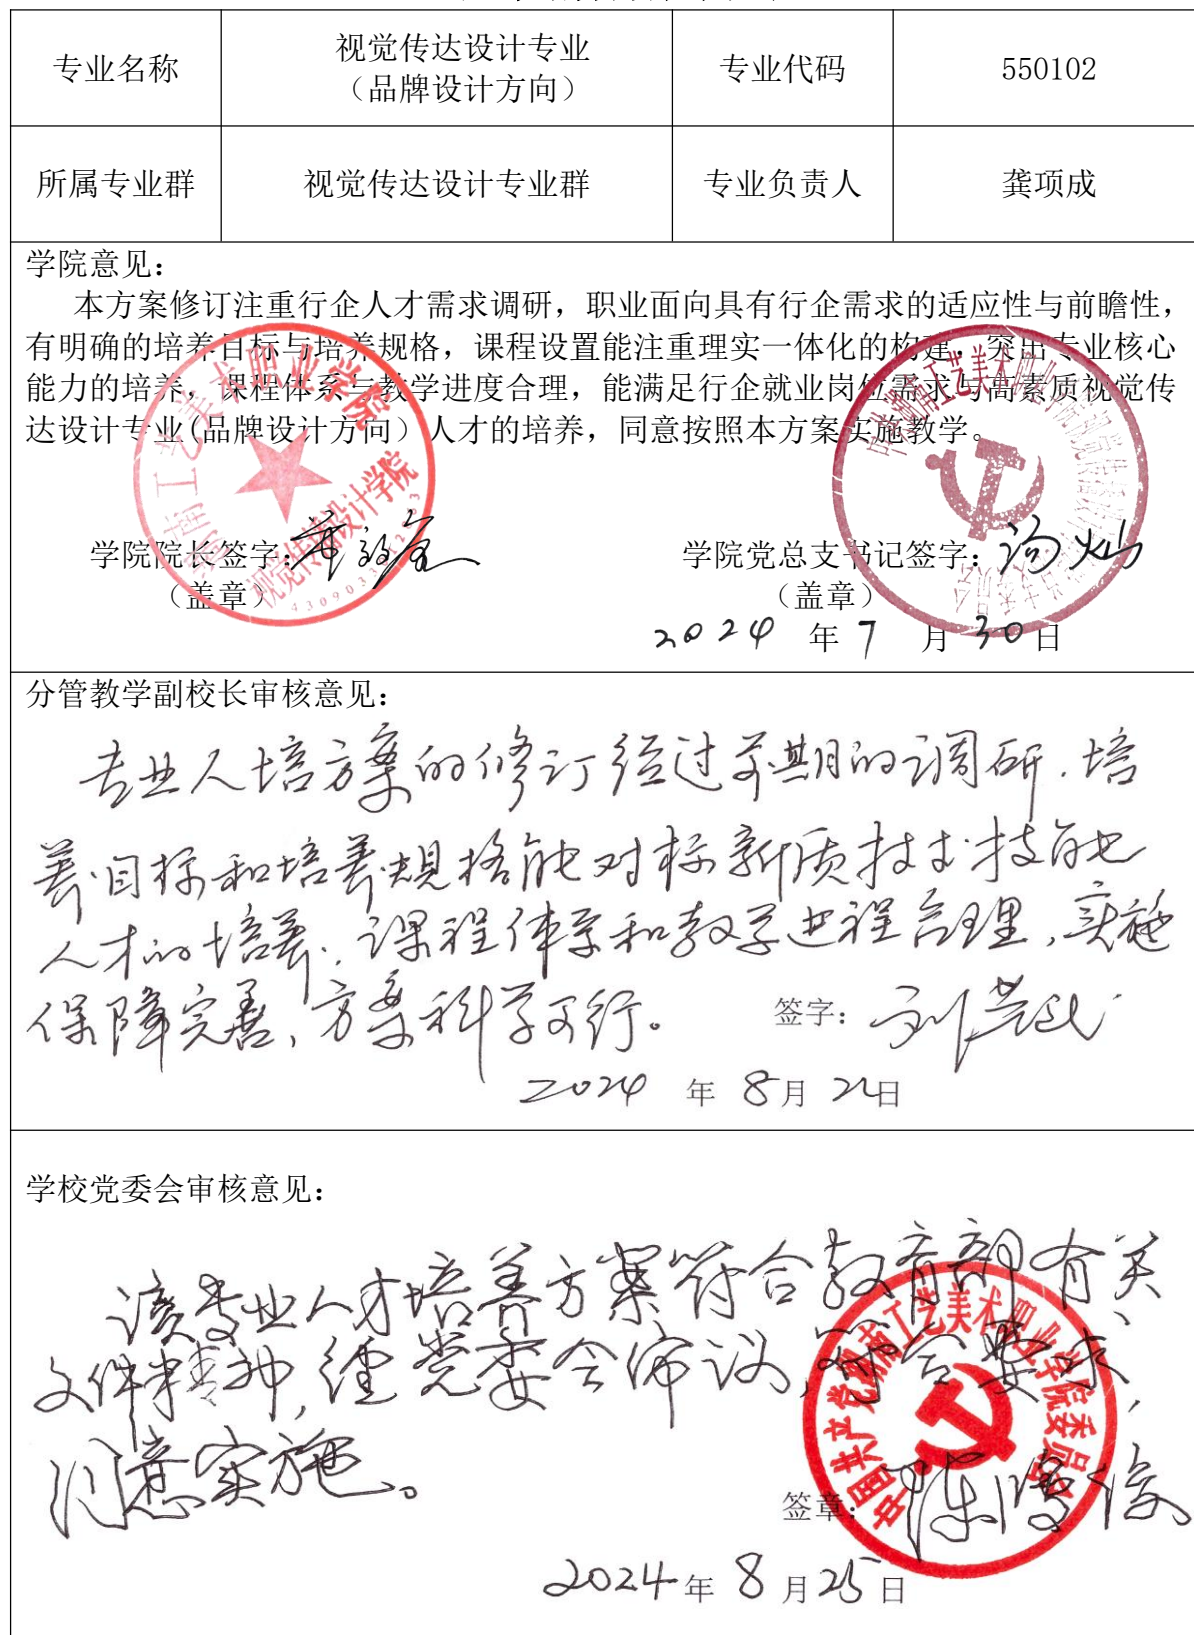 专业名称
视觉传达设计专业
（品牌设计方向）
专业代码
550102
所属专业群
视觉传达设计专业群
专业负责人
龚项成
学院意见：
本方案修订注重行企人才需求调研，职业面向具有行企需求的适应性与前瞻性，
有明确的培养目标与培养规格，课程设置能注重理实一体化的构建，突出专业核心
能力的培养，课程体系与教学进度合理，能满足行企就业岗位需求与高素质视觉传
达设计专业(品牌设计方向）人才的培养，同意按照本方案实施教学。
湖南工艺美术职业学院
视觉传播设计学院
学院院长签字：
（盖章）
学院党总支书记签字：汤灿
（盖章）
2024 年 7 月 30 日
分管教学副校长审核意见：
专业人培方案的修订经过前期的调研，培
养目标和培养规格能对标新质技术技能
人才的培养，课程体系和教学进程合理，实施
保障完善，方案科学可行。
签字：
2024 年 8 月 22 日
学校党委会审核意见：
该专业人才培养方案符合教育部有关
文件精神，经党委会审议，符合要求，
同意实施。
中国共产党湖南工艺美术职业学院委员会
签章：
2024 年 8 月 25 日